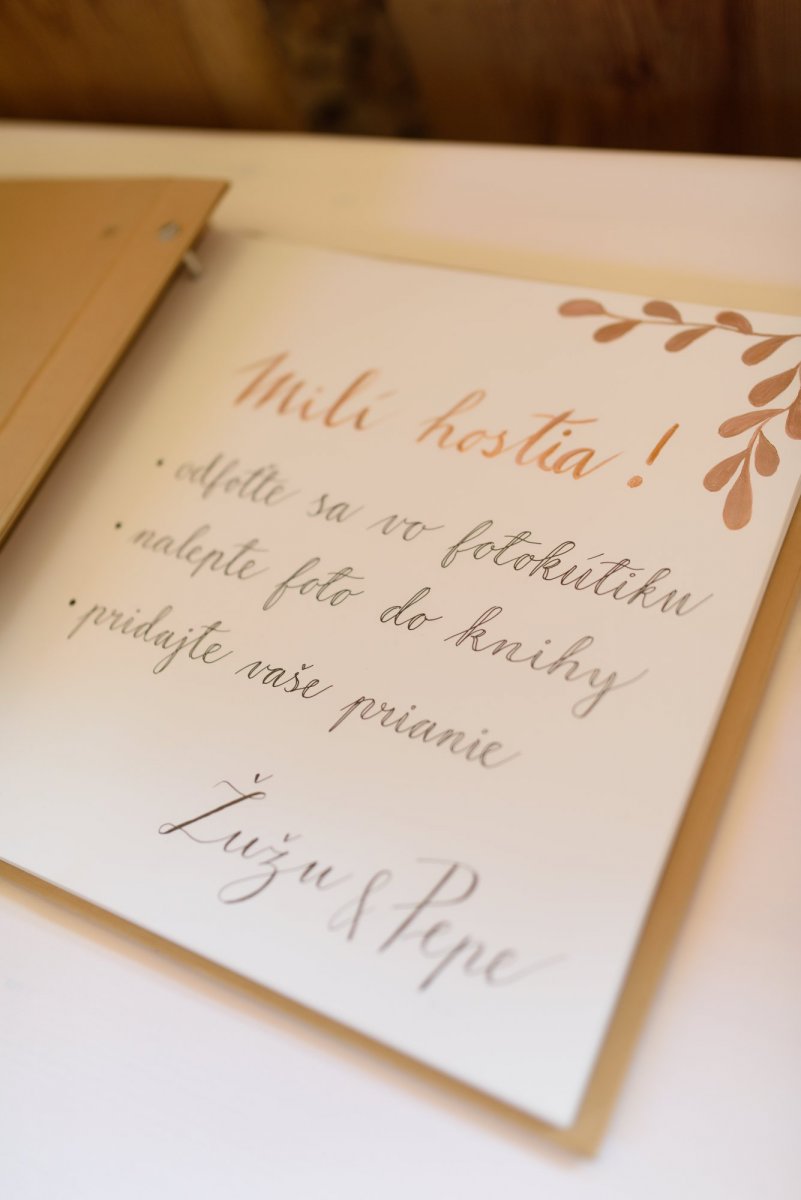 Milí hostia!
• odfoťte sa vo fotokútiku
• nalepte foto do knihy
• pridajte vaše prianie
Žužu & Pepe